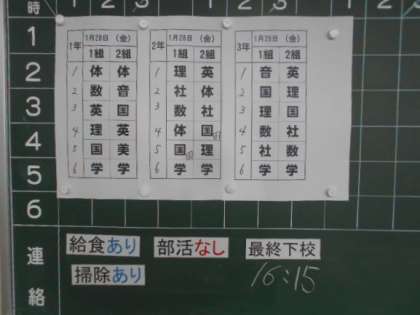 時 1 2 3 1 2
1年 1月28日 (金) 2年 1月28日 (金) 3年 1月28日 (金)
1組 2組 1組 2組 1組 2組
1 1 体 体 1 理 英 1 音 英
2 2 数 音 2 社 体 2 国 理
3 3 英 国 3 数 社 3 理 国
4 4 理 英 4 体 国 4 数 社
5 5 国 美 5 国 理 5 社 数
6 学 学 6 学 学 6 学 学
6
連絡
給食あり 部活なし 最終下校
掃除あり 16:15